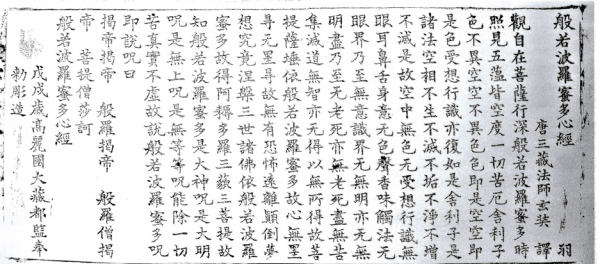 般若波羅蜜多心經 羽
唐三藏法師玄奘 譯
觀自在菩薩行深般若波羅蜜多時
照見五蘊皆空度一切苦厄舍利子
色不異空空不異色色即是空空即
是色受想行識亦復如是舍利子是
諸法空相不生不滅不垢不淨不增
不減是故空中無色无受想行識無
眼耳鼻舌身意无色聲香味觸法无
眼界乃至无意識界无無明亦无無
明盡乃至无老死亦無老死盡無苦
集滅道無智亦无得以无所得故菩
提薩埵依般若波羅蜜多故心無罣
㝵无罣㝵故無有恐怖遠離顛倒夢
想究竟涅槃三世諸佛依般若波羅
蜜多故得阿耨多羅三藐三菩提故
知般若波羅蜜多是大神呪是大明
呪是無上呪是無等等呪能除一切
苦真實不虛故說般若波羅蜜多呪
即說呪曰
揭帝揭帝 般羅揭帝 般羅僧揭
帝 菩提僧莎訶
般若波羅蜜多心經
戊戌歲高麗國大藏都監奉
勅彫造